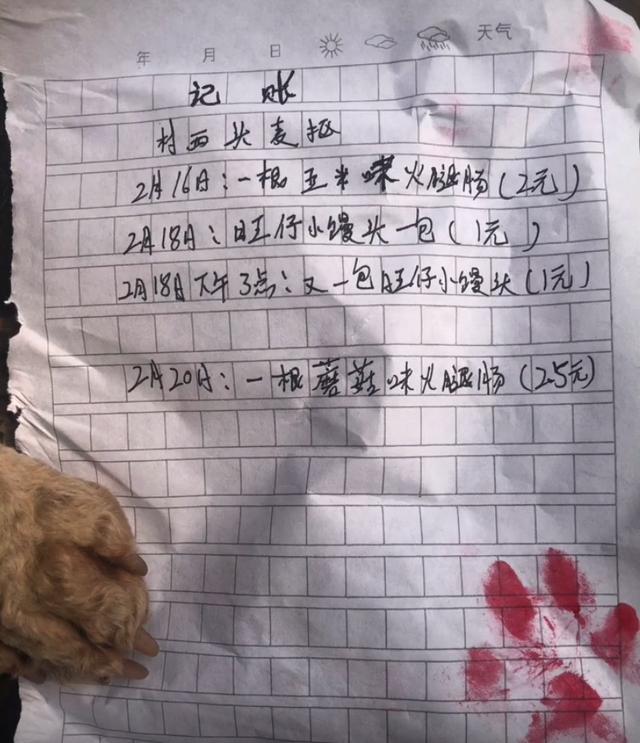 年 月 日 天气
记 账
村西头麦抠
2月16日:一根玉米味火腿肠(2元)
2月18日:旺仔小馒头一包(1元)
2月18日下午3点:又一包旺仔小馒头(1元)
2月20日:一根蘑菇味火腿肠(2.5元)